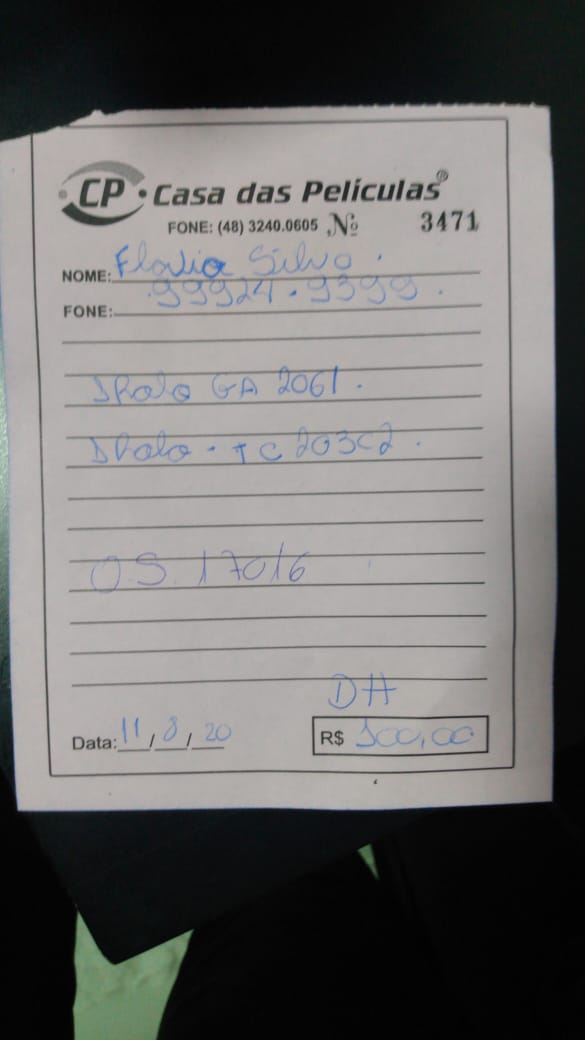 CP • Casa das Películas®
FONE: (48) 3240.0605 Nº 3471
NOME: Flavia Silva.
FONE: 99924.9399.
GA 2061.
TC 203C2.
O.S. 17016
DH
Data: 11/8/20 R$ 100,00